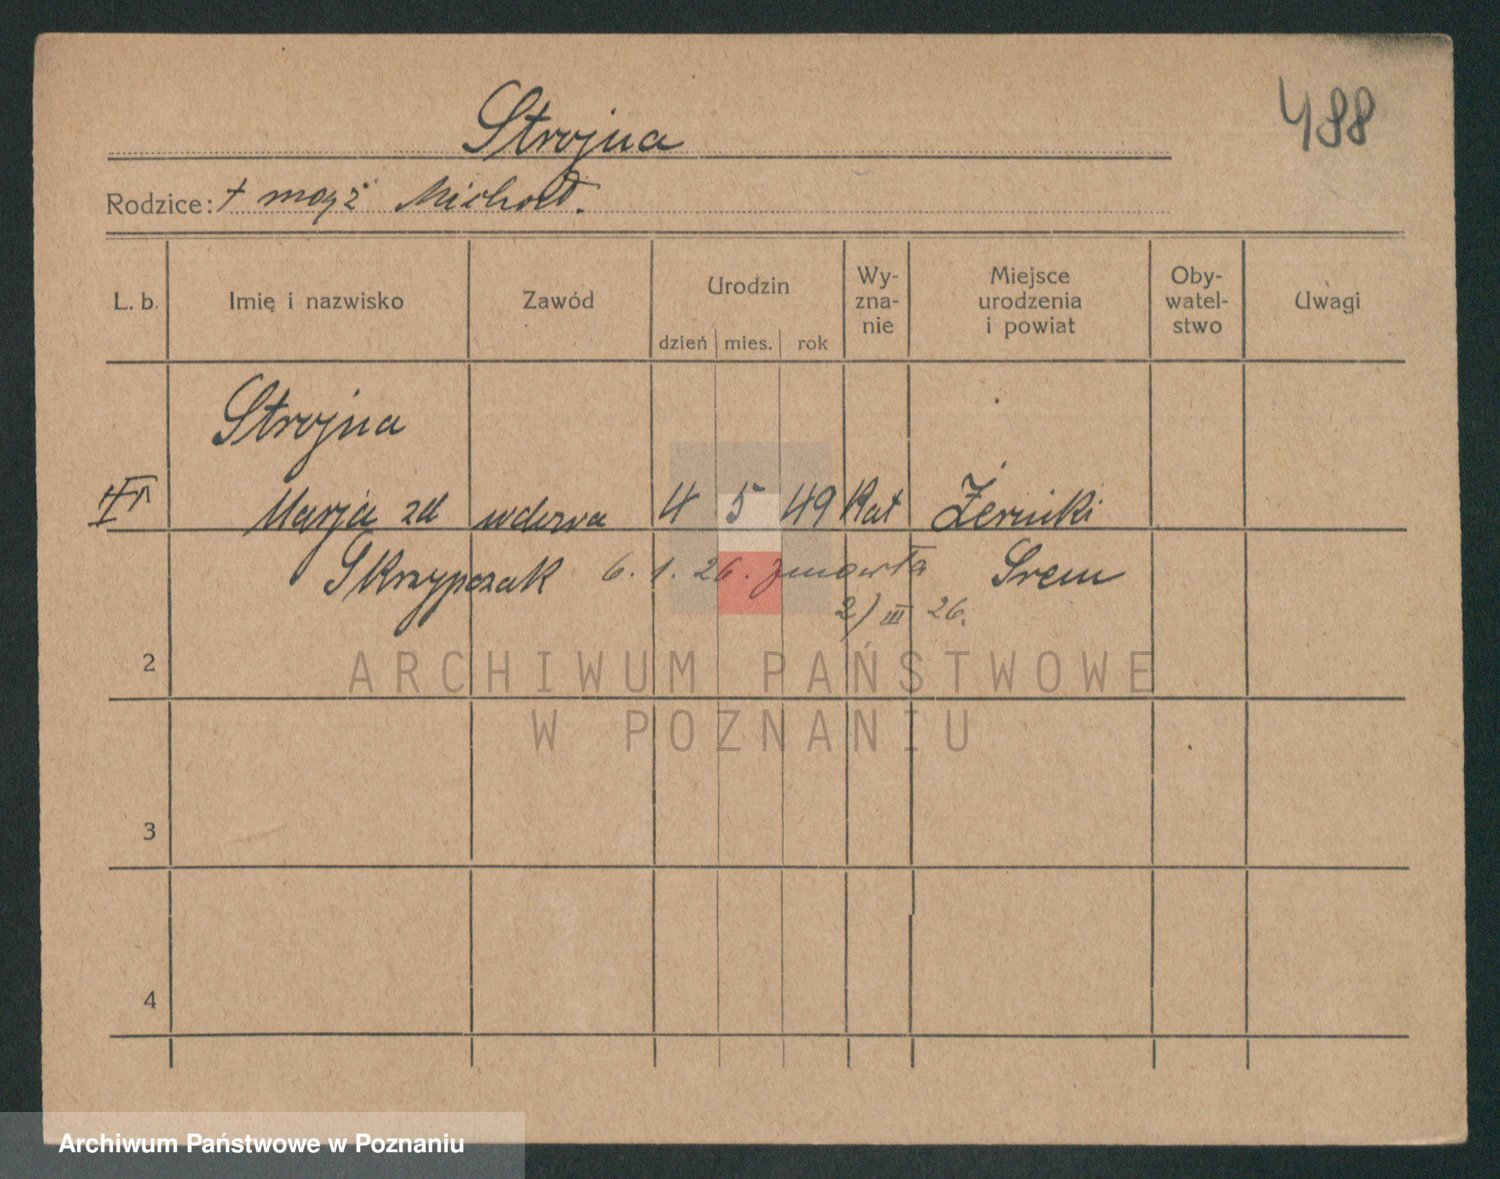 Strojna
488
Rodzice: + mąż Michał.
L. b.
Imię i nazwisko
Zawód
Urodzin
dzień mies. rok
Wy-
zna-
nie
Miejsce
urodzenia
i powiat
Oby-
watel-
stwo
Uwagi
Strojna
Marja zd wdowa 4 5 49 Kat Żerniki
Skrzypczak 6.1.26. zmarła Śrem
2) III 26.
2
3
4
ARCHIWUM PAŃSTWOWE
W POZNANIU
Archiwum Państwowe w Poznaniu